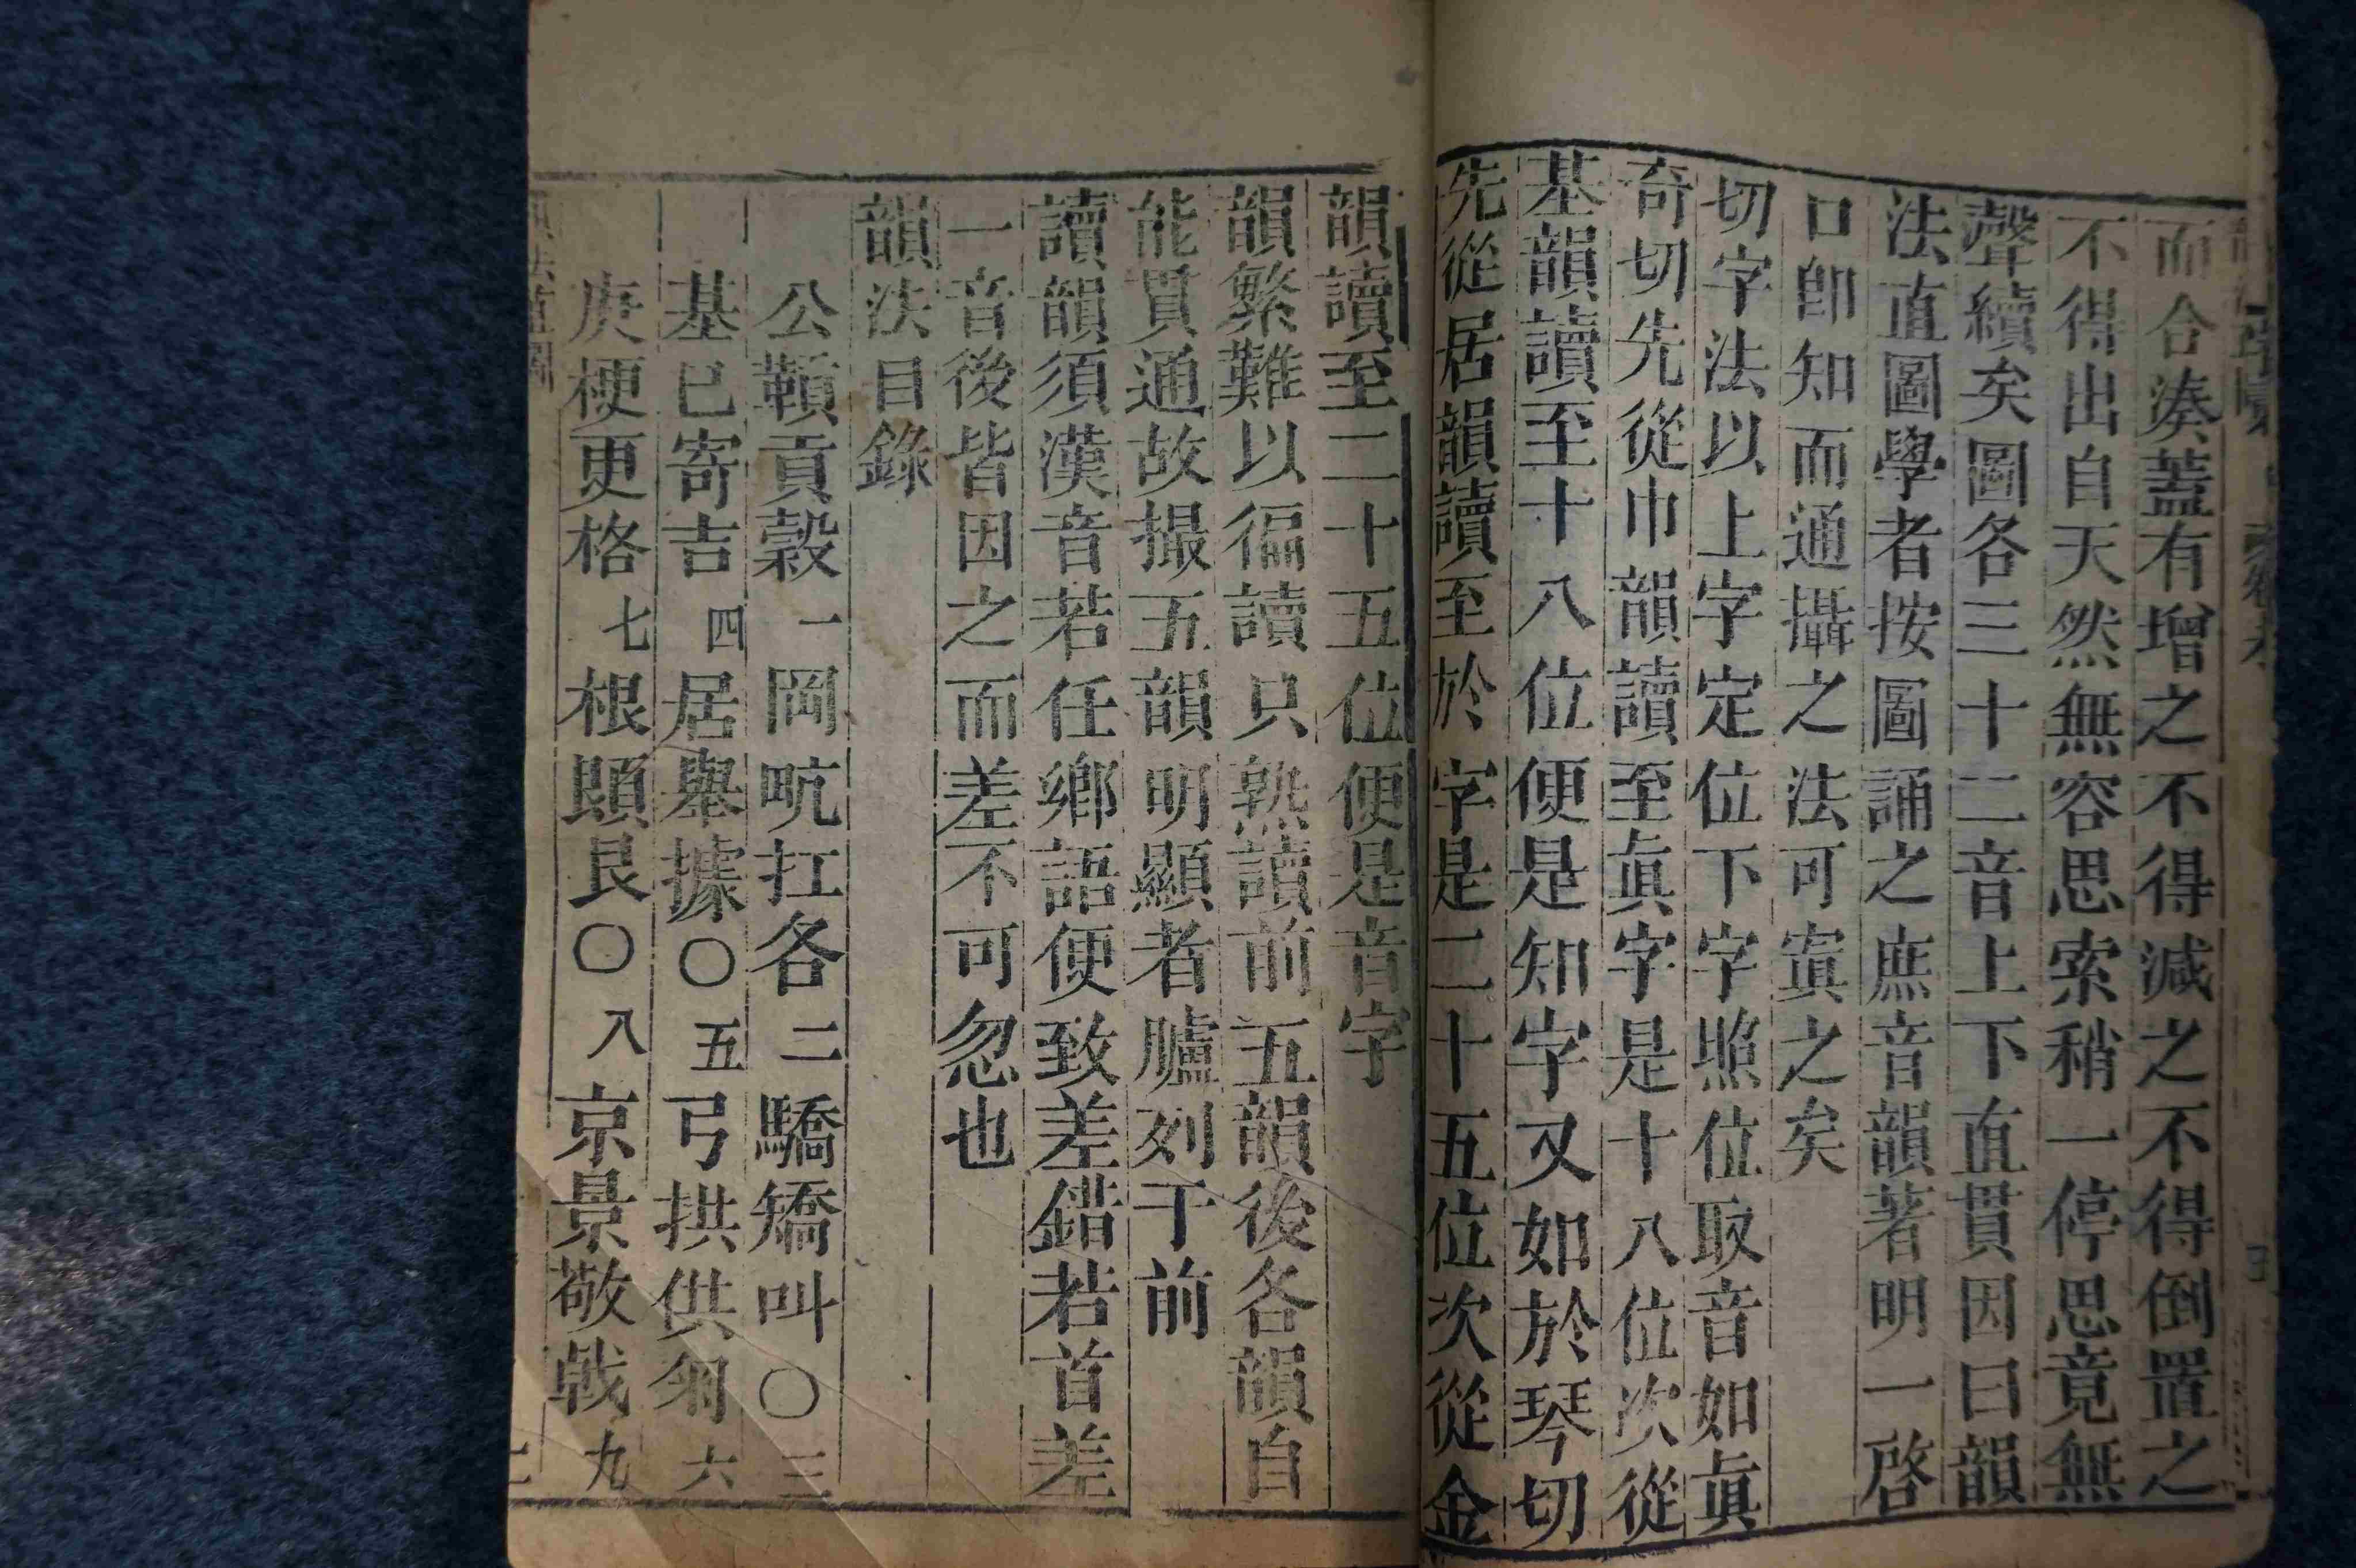 而合湊蓋有增之不得減之不得倒置之
不得出自天然無容思索稍一停思竟無
聲續矣圖各三十二音上下直貫因曰韻
法直圖學者按圖誦之庶音韻著明一啓
口卽知而通攝之法可寘之矣
切字法以上字定位下字照位取音如眞
奇切先從巾韻讀至眞字是十八位次從
基韻讀至十八位便是知字又如於琴切
先從居韻讀至於字是二十五位次從金
韻讀至二十五位便是音字
韻繁難以徧讀只熟讀前五韻後各韻自
能貫通故撮五韻明顯者臚列于前
讀韻須漢音若任鄉語便致差錯若首差
一音後皆因之而差不可忽也
韻法目錄
公䩬貢穀一岡甿扛各二驕矯叫〇三
基已寄吉四居舉據〇五弓拱供匊六
庚梗更格七根頣艮〇八京景敬戟九